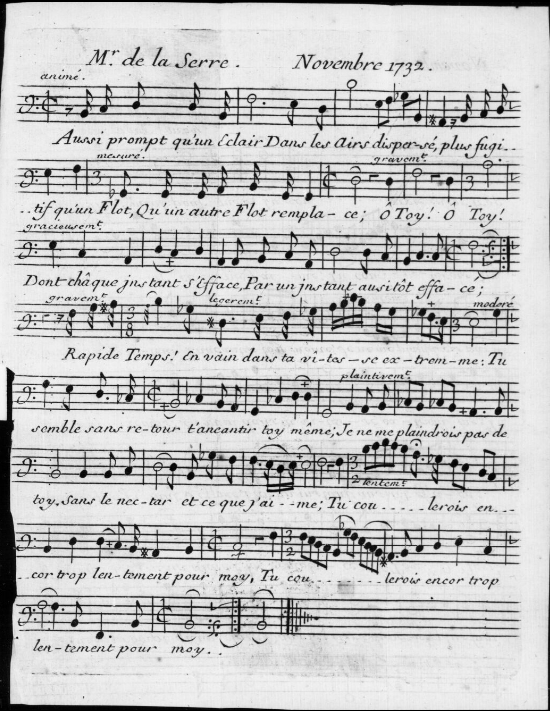 Mr. de la Serre. Novembre 1732.
animé.
Aussi prompt qu'un Eclair Dans les Airs disper-sé, plus fugi..
mesuré. gravemt.
..tif qu'un Flot, Qu'un autre Flot rempla-ce; Ô Toy! Ô Toy!
gracieusemt.
Dont châque jnstant s'Efface, Par un jnstant ausitôt effa-ce;
gravemt. legeremt. moderé
Rapide Temps! En vain dans ta vi-tes--se ex-trem-me: Tu
plaintivemt.
semble sans re-tour t'aneantir toy même; Je ne me plaindrois pas de
lentemt.
toy. Sans le nec-tar et ce que j'ai--me; Tu cou.....lerois en...
..cor trop len-tement pour moy, Tu cou.......lerois encor trop
len-tement pour moy..